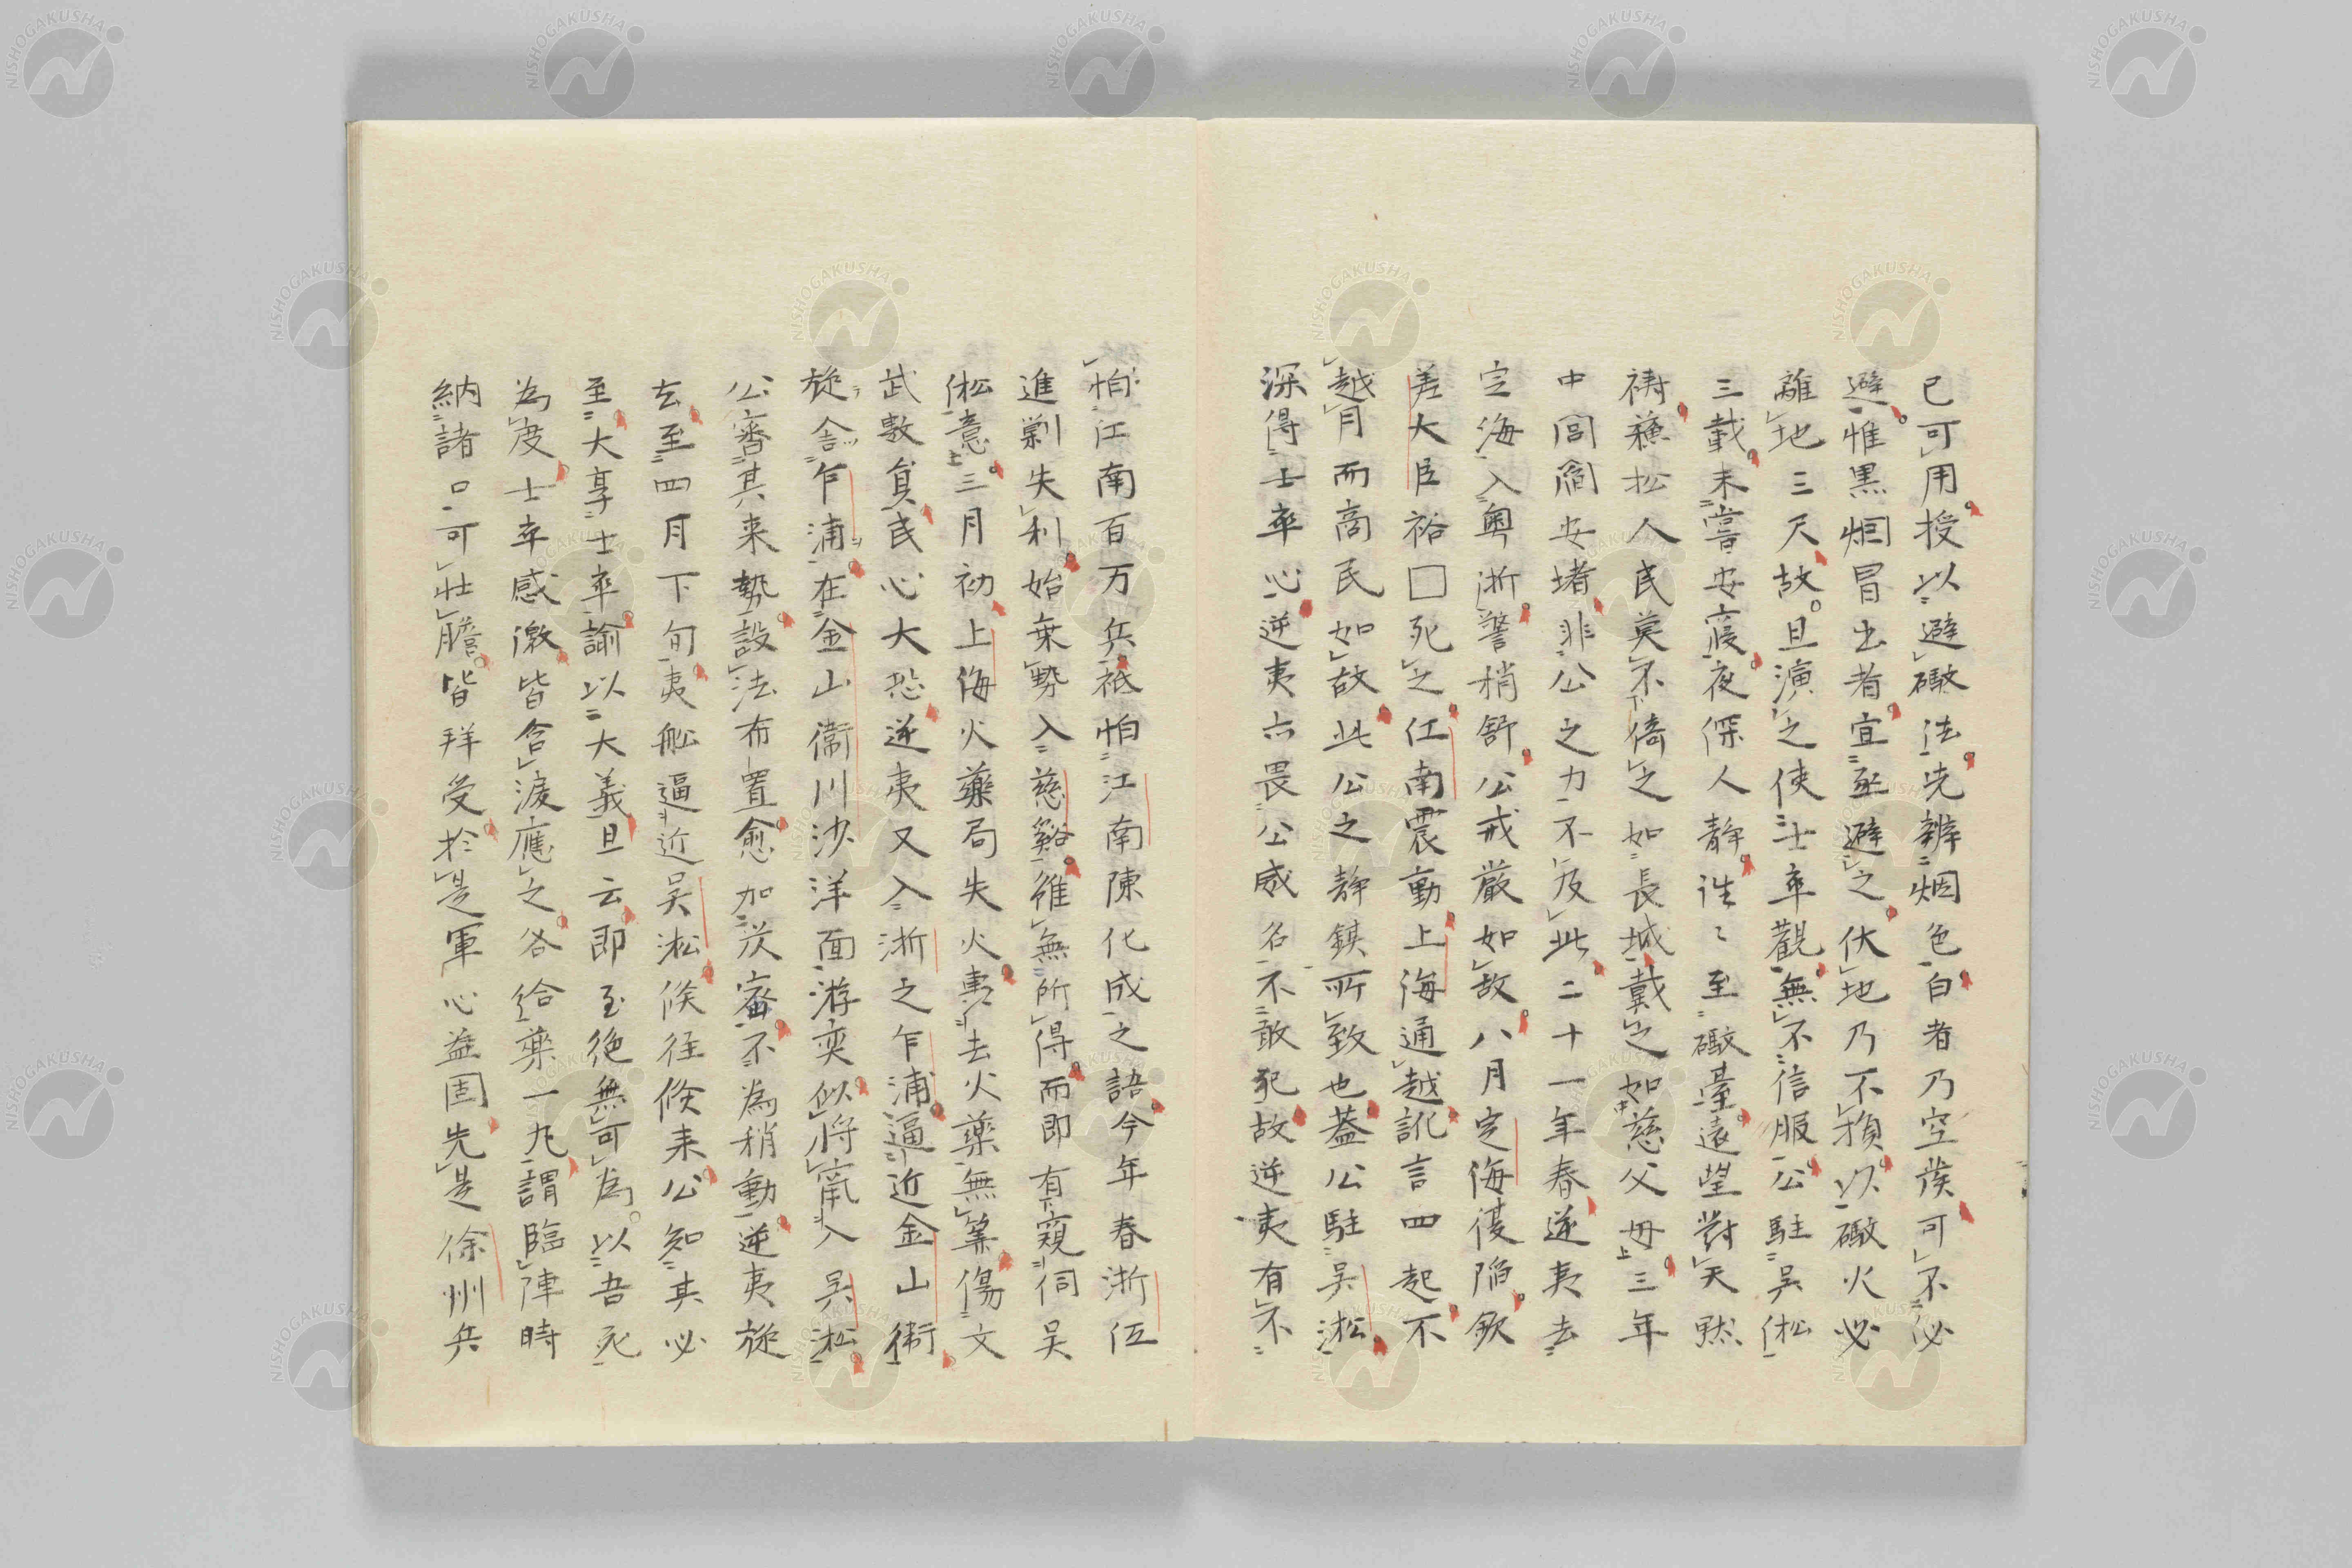 已可用授以避礮法先辨烟色白者乃空發可不必
避惟黒烟冒出者宜亟避之伏地乃不損以礮火必
離地三尺故且演之使士卒觀無不信服公駐呉淞
三載未嘗安寢夜深人静徃〻至礮臺遠望對天默
禱蘓松人民莫不倚之如長城戴之如慈父母三年
中閭閻安堵非公之力不及此二十一年春逆夷去
定海入粤浙警稍舒公戒嚴如故八月定海復陷欽
差大臣裕□死之江南震動上海通越訛言四起不
越月而商民如故此公之静鎮所致也葢公駐呉淞
深得士卒心逆夷亦畏公威名不敢犯故逆夷有不
怕江南百万兵祗怕江南陳化成之語今年春浙伍
進剿失利始乗勢入慈谿雖無所得而即有窺伺呉
淞意三月初上海火藥局失火夷去火藥無筭傷文
武數員民心大恐逆夷又入浙之乍浦逼近金山衛
旋舎乍浦在金山衛川沙洋面游奕似將竄入呉淞
公審其来勢設法布置愈加茨密不為稍動逆夷旋
去至四月下旬夷舩逼近呉淞倏徃倏来公知其必
至大享士卒諭以大義且云即至絶無可為以吾死
為度士卒感激皆含淚應之各給藥一丸謂臨陣時
納諸口可壯膽皆拜受於是軍心益固先是徐州兵